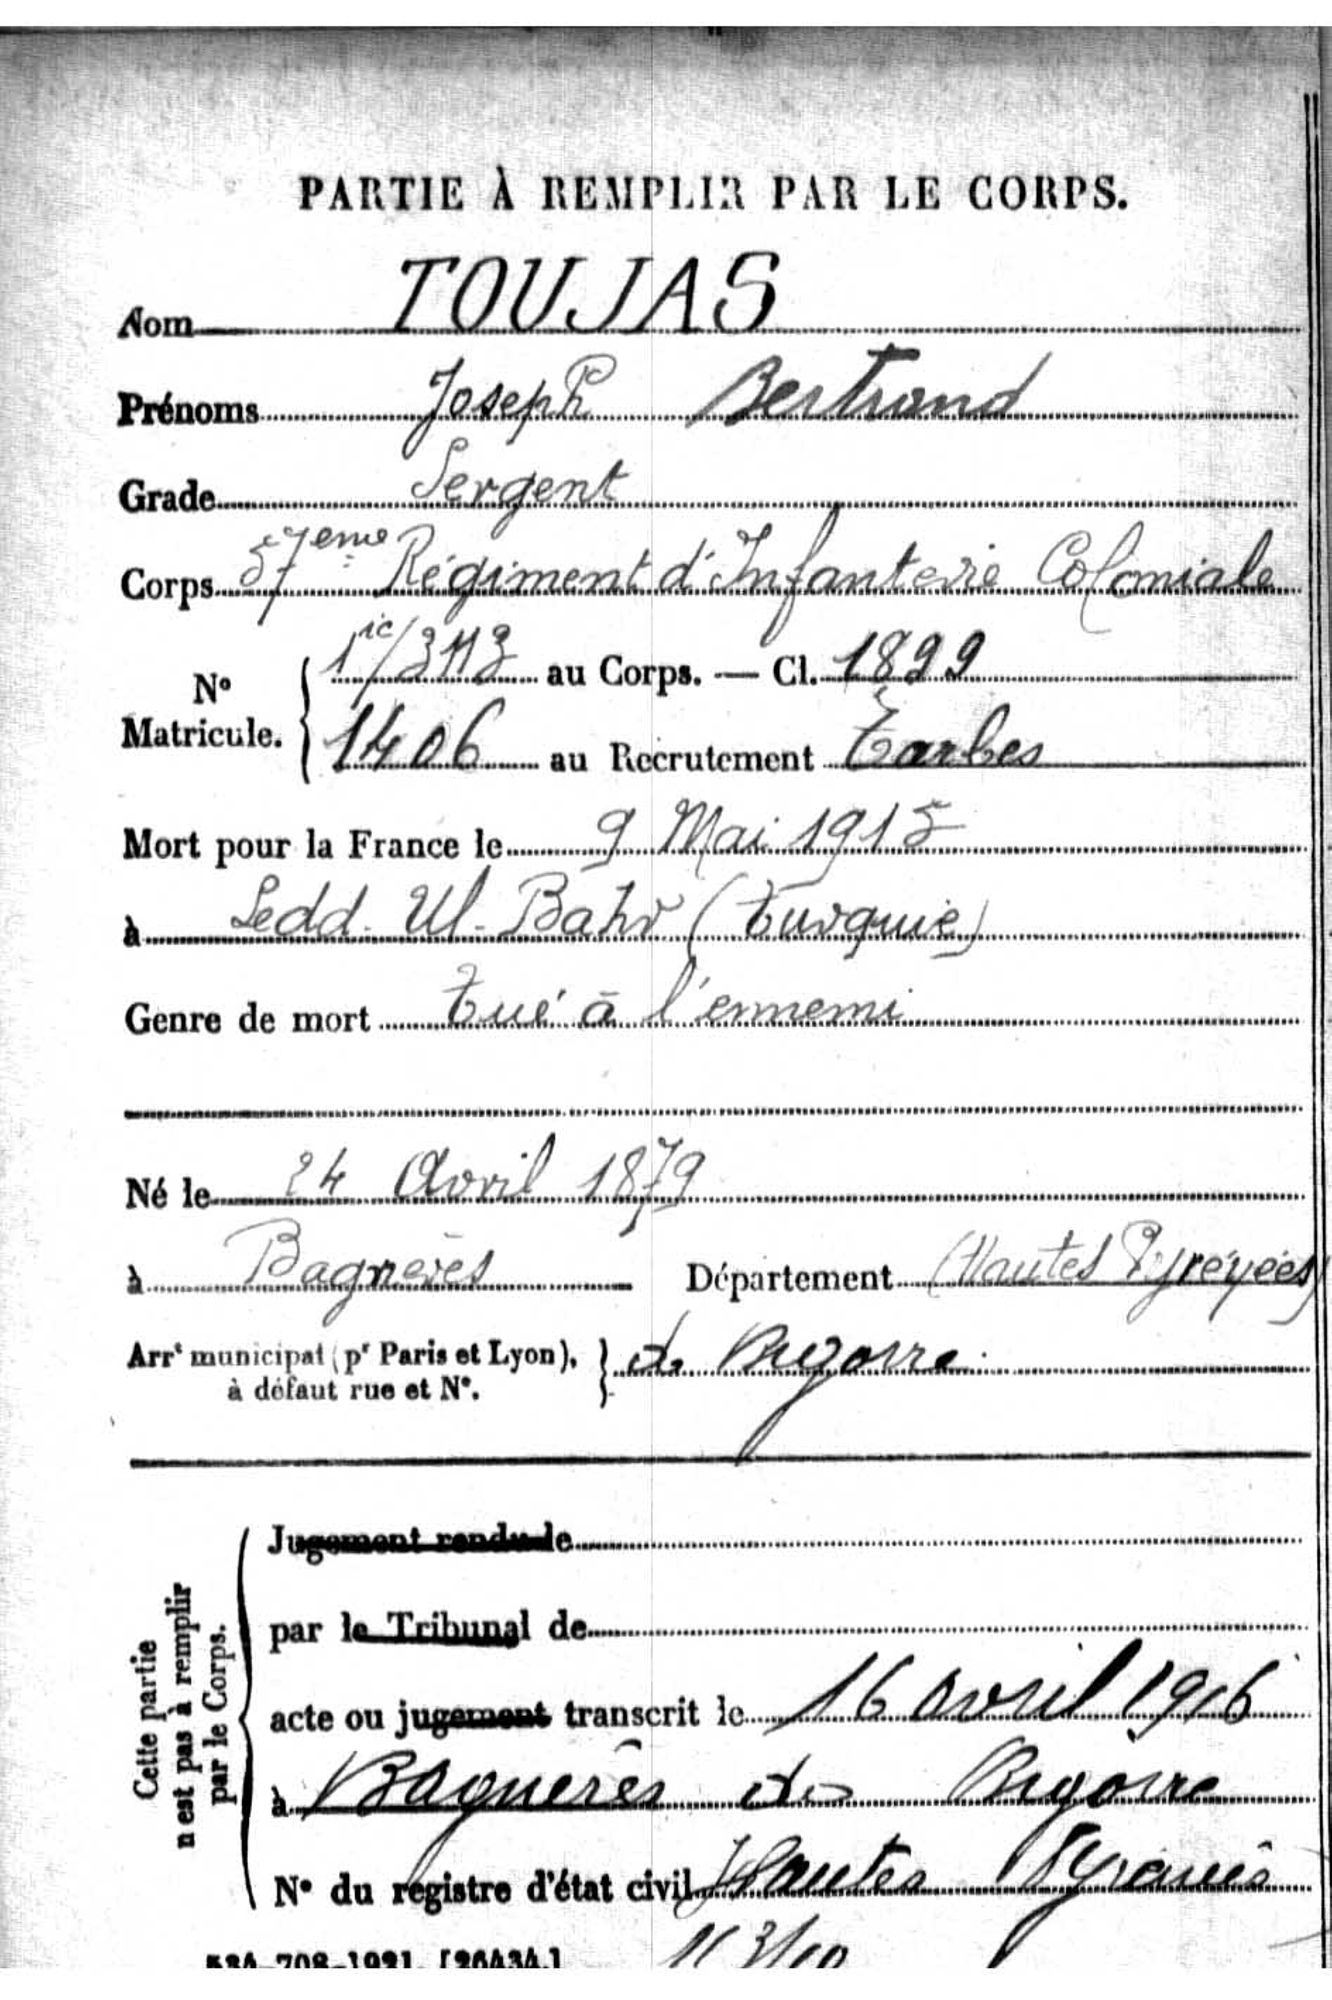 PARTIE À REMPLIR PAR LE CORPS.
Nom TOUJAS
Prénoms Joseph Bertrand
Grade Sergent
Corps 57eme Régiment d'Infanterie Coloniale
N° Matricule. 1ic/3113 au Corps. — Cl. 1899
1406 au Recrutement Tarbes
Mort pour la France le 9 Mai 1915
à Sedd-Ul-Bahr (Turquie)
Genre de mort Tué à l'ennemi
Né le 24 Avril 1879
à Bagnères Département (Hautes Pyréyées)
Arrt municipal (pr Paris et Lyon), à défaut rue et N°. de Bigorre
Cette partie n'est pas à remplir par le Corps.
Jugement rendu le
par le Tribunal de
acte ou jugement transcrit le 16 avril 1916
à Bagnerês de Bigorre
N° du registre d'état civil Hautes Pyrénées
534-708-1921. [26434.]